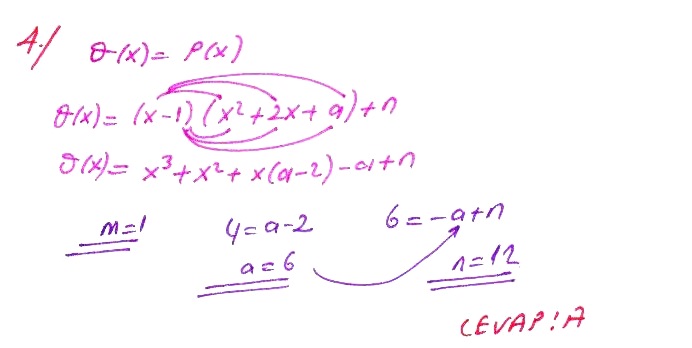 4./ θ(x) = P(x)
θ(x) = (x-1)(x²+2x+a)+n
θ(x) = x³+x²+x(a-2)-a+n
m=1 4=a-2 6=-a+n
a=6 n=12
CEVAP: A